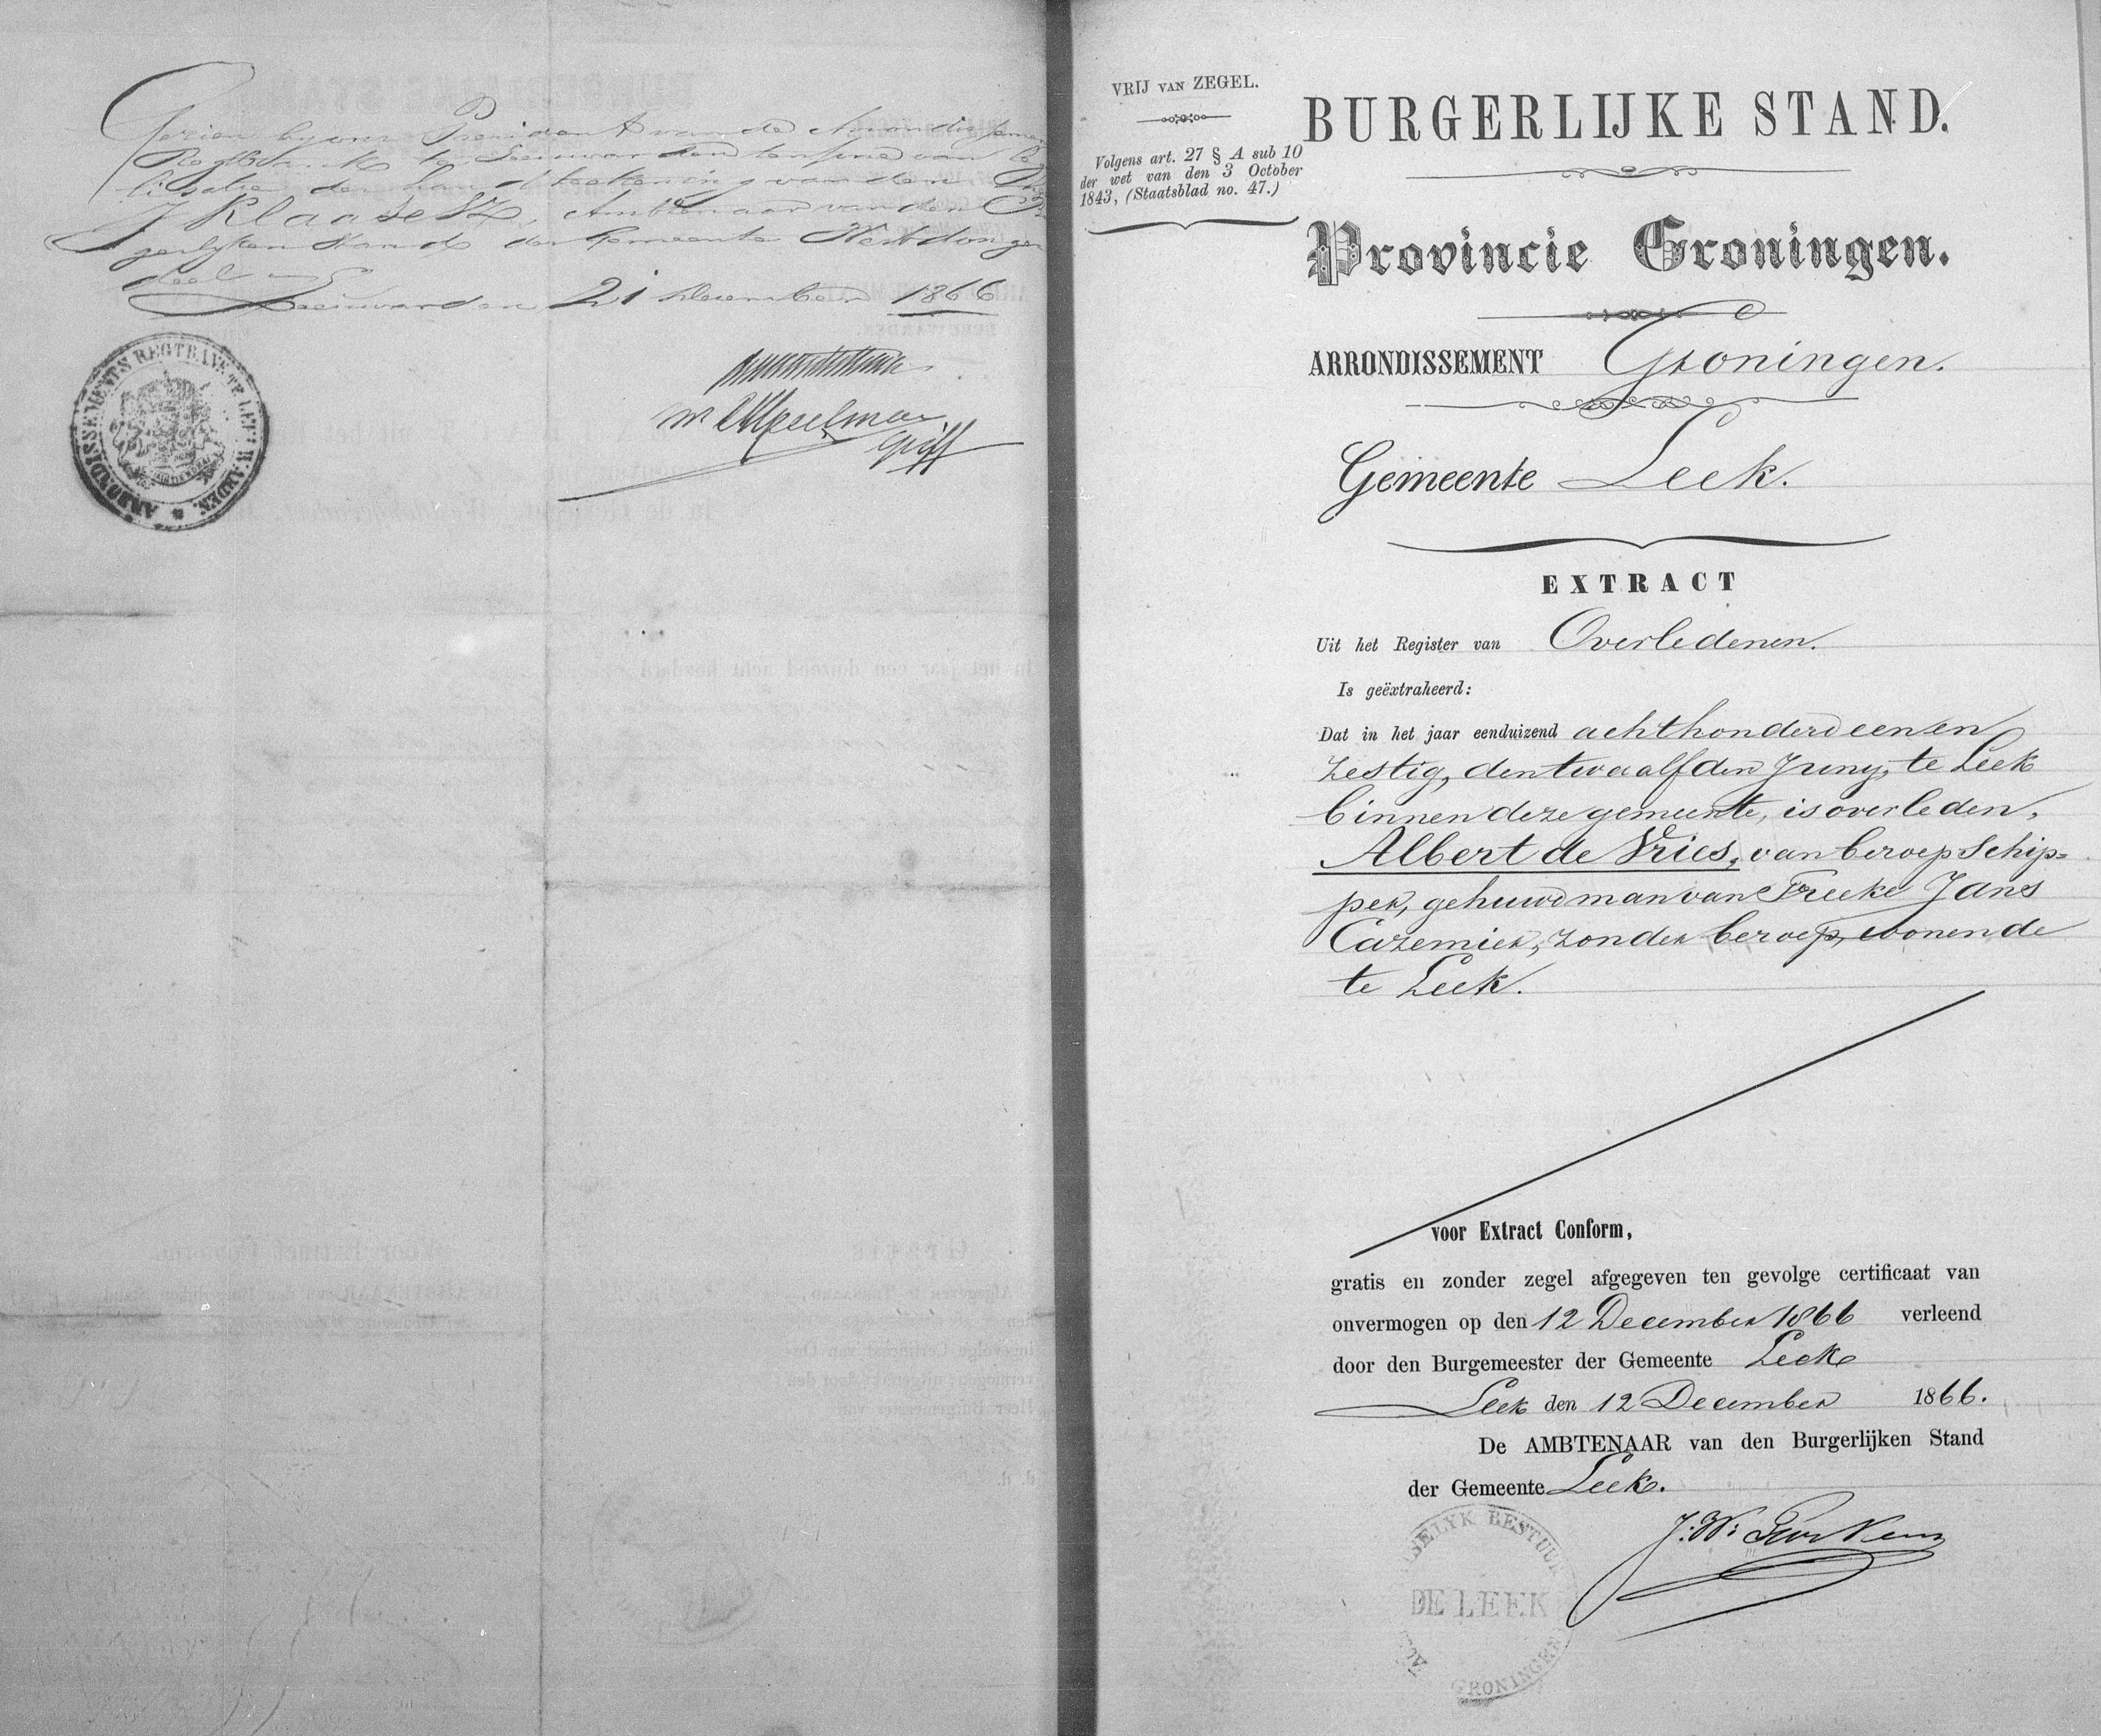 Gezien by ons President van de Arrondissements
Regtbank te Leeuwarden ten fine van le
lisatie der handteekening van den
J Klaasesz, Ambtenaar van den
gerlyken Stand der Gemeente Westdonger
deel
Leeuwarden 21 December 1866
ARRONDISSEMENTS REGTBANK TE LEEUWARDEN
griff
VRIJ VAN ZEGEL.
Volgens art. 27 § A sub 10
der wet van den 3 October
1843, (Staatsblad no. 47.)
BURGERLIJKE STAND.
Provincie Groningen.
ARRONDISSEMENT Groningen.
Gemeente Leek.
EXTRACT
Uit het Register van Overledenen.
Is geëxtraheerd:
Dat in het jaar eenduizend achthonderd een en
zestig, den twaalfden Juny, te Leek
binnen deze gemeente, is overleden,
Albert de Vries, van beroep Schip=
per, gehuwd man van Freeke Jans
Cazemier, zonder beroep, wonende
te Leek.
voor Extract Conform,
gratis en zonder zegel afgegeven ten gevolge certificaat van
onvermogen op den 12 December 1866 verleend
door den Burgemeester der Gemeente Leek
Leek den 12 December 1866.
De AMBTENAAR van den Burgerlijken Stand
der Gemeente Leek.
J. W.
BESTUUR
DE LEEK
GRONINGEN